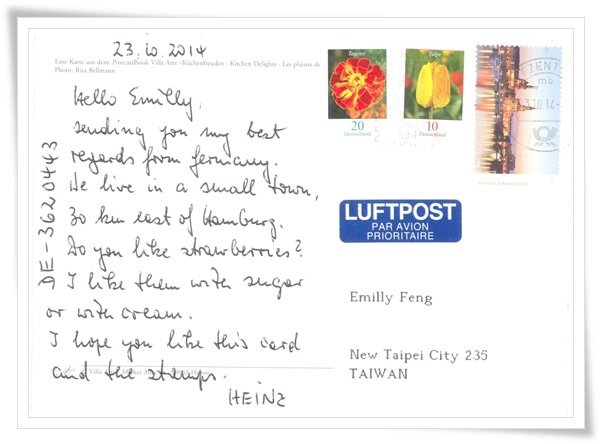 23.10.2014
Eine Karte aus dem Postcardbook Villa Arte »Küchenfreuden - Kitchen Delights - Les plaisirs de
Photo: Rita Bellmann
Hello Emilly,
sending you my best
regards from Germany.
We live in a small town,
30 km east of Hamburg.
Do you like strawberries?
I like them with sugar
or with cream.
I hope you like this card
and the stamps.
HEINZ
DE-3620443
Tagetes
20
Deutschland
Tulpe
10
Deutschland
ZENT
mb
3.10.14
LUFTPOST
PAR AVION
PRIORITAIRE
Emilly Feng
New Taipei City 235
TAIWAN